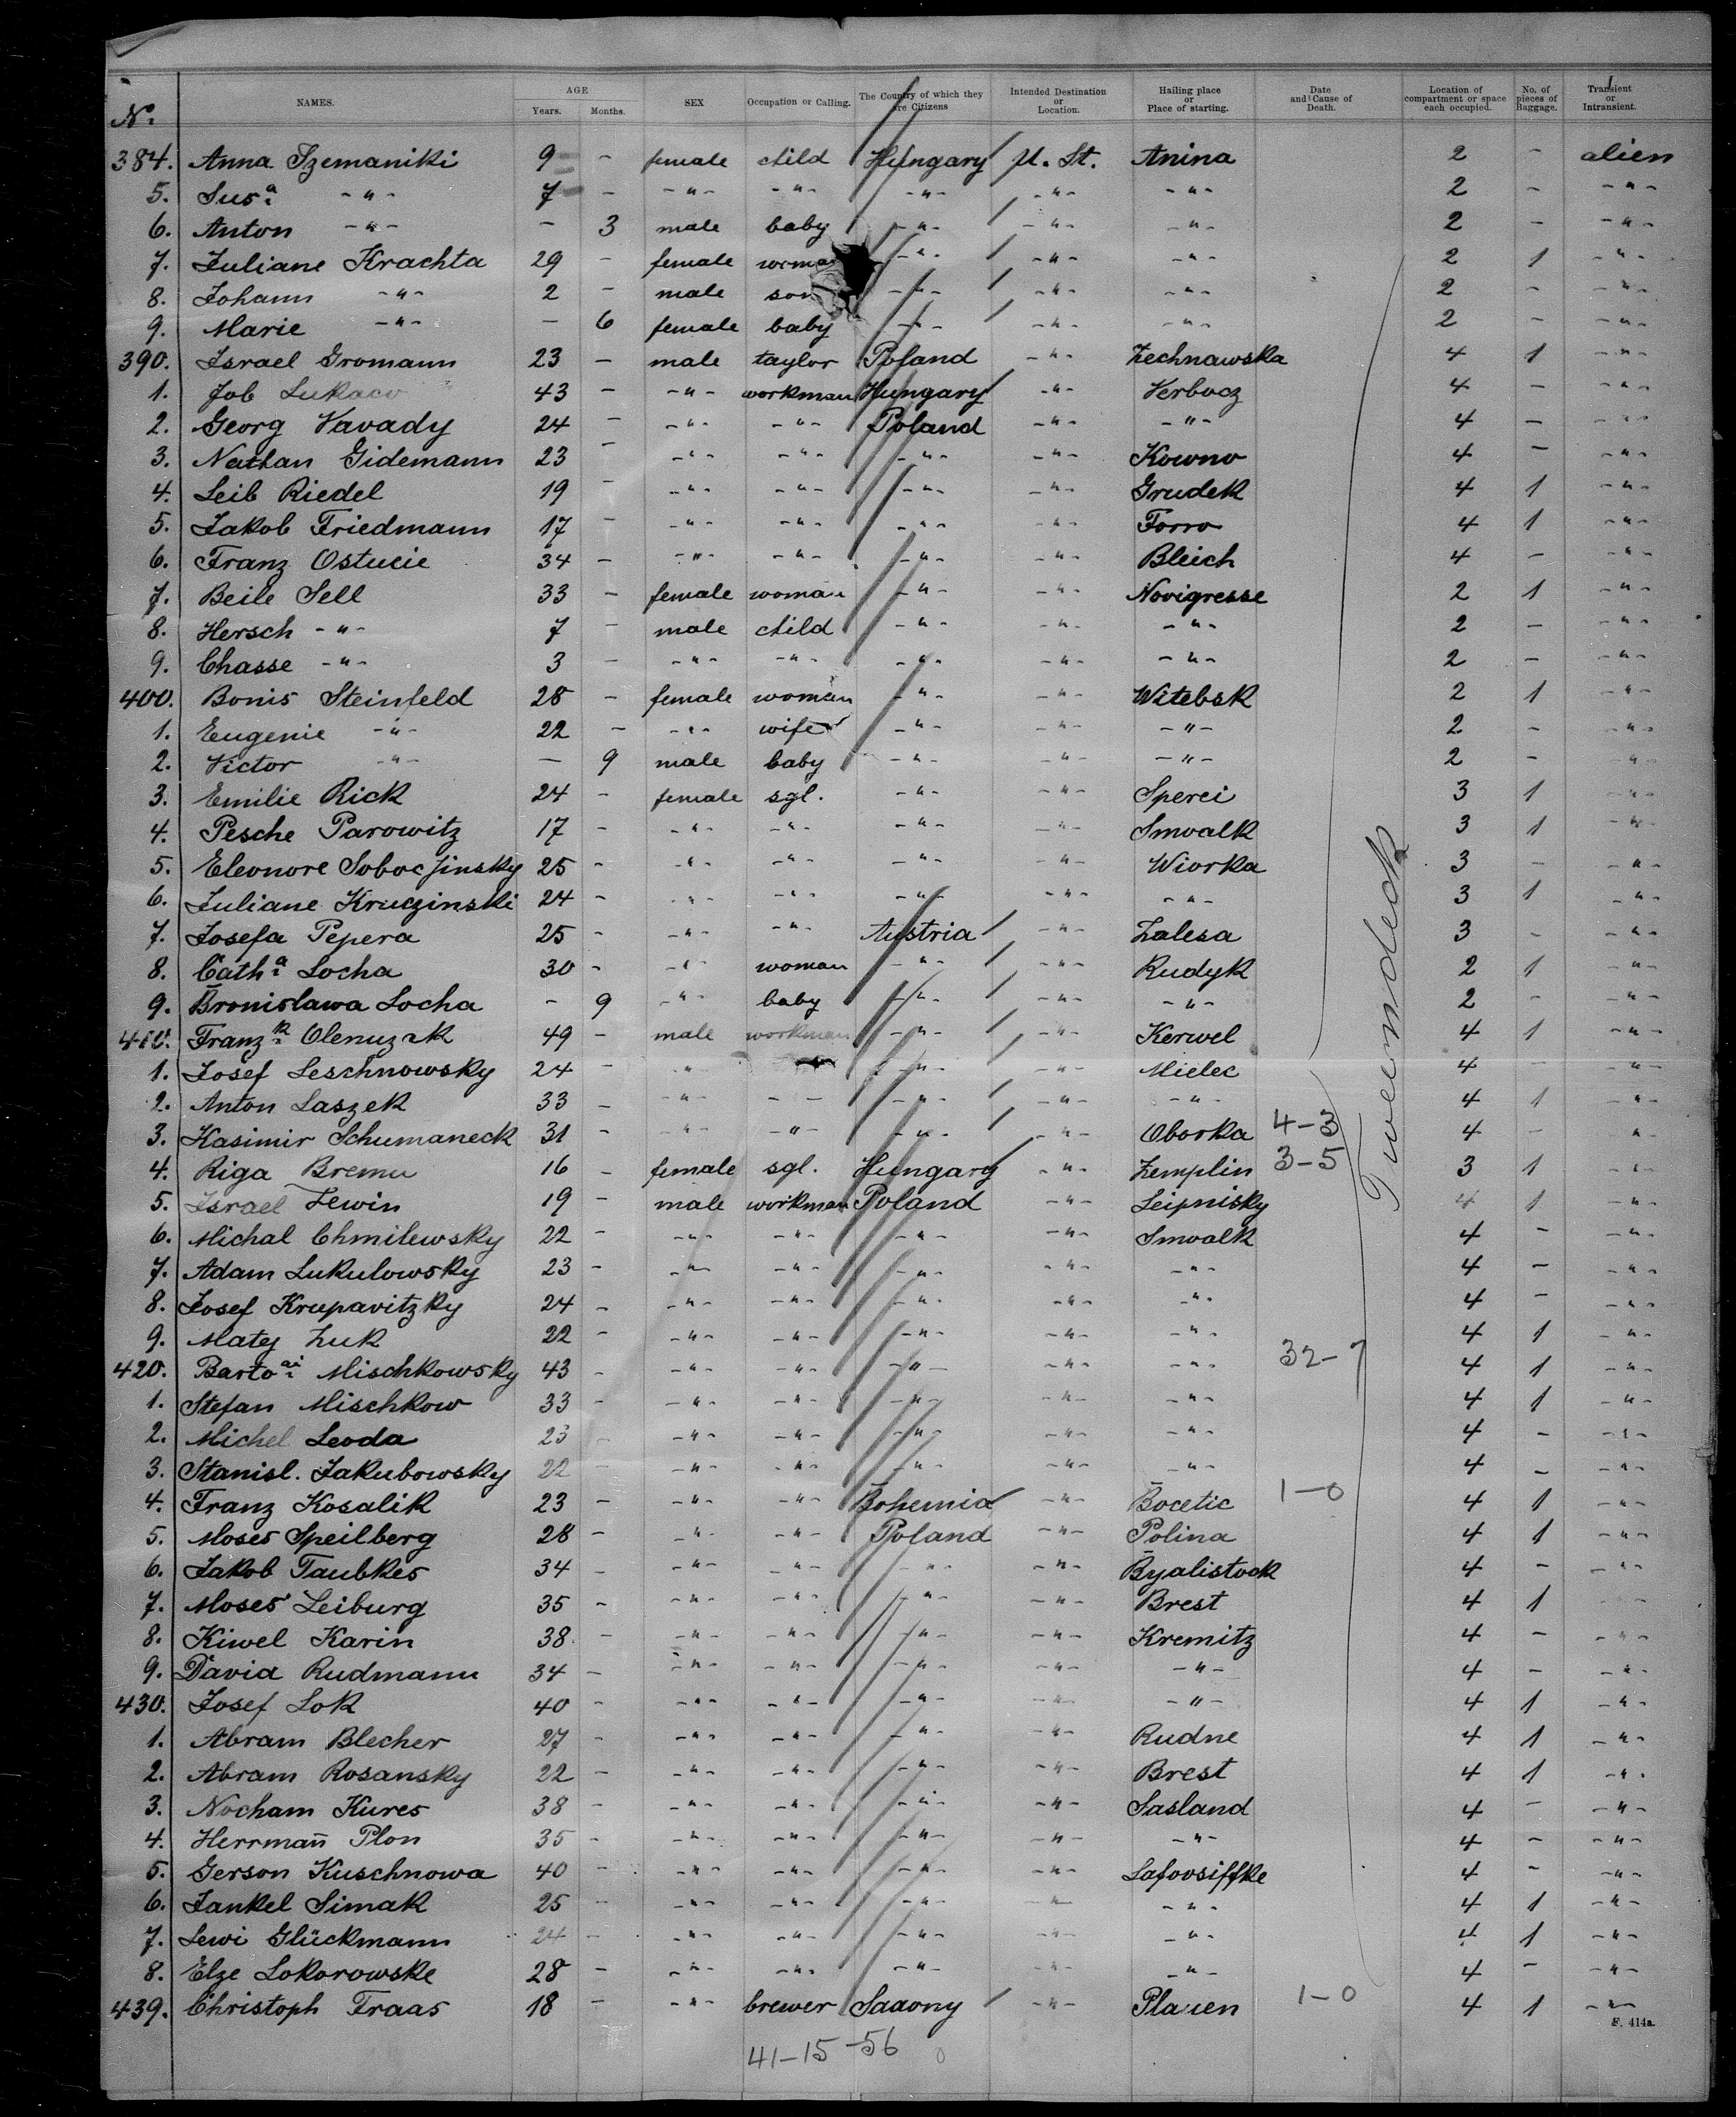 No. NAMES. AGE Years. Months. SEX Occupation or Calling. The Country of which they are Citizens Intended Destination or Location. Hailing place or Place of starting. Date and Cause of Death. Location of compartment or space each occupied. No. of pieces of Baggage. Transient or Intransient.
384. Anna Szemaniki 9 - female child Hungary U. St. Anina 2 - alien
5. Susa -"- 7 - -"- -"- -"- -"- -"- 2 - -"-
6. Anton -"- - 3 male baby -"- -"- -"- 2 - -"-
7. Juliane Krachta 29 - female woman -"- -"- -"- 2 1 -"-
8. Johann -"- 2 - male son -"- -"- -"- 2 - -"-
9. Marie -"- - 6 female baby -"- -"- -"- 2 - -"-
390. Israel Gromann 23 - male taylor Poland -"- Zechnawska 4 1 -"-
1. Job Lukacv 43 - -"- workman Hungary -"- Verbocz 4 - -"-
2. Georg Vavady 24 - -"- -"- Poland -"- -"- 4 - -"-
3. Nathan Gidemann 23 - -"- -"- -"- -"- Kowno 4 - -"-
4. Leib Riedel 19 - -"- -"- -"- -"- Grudek 4 1 -"-
5. Jakob Friedmann 17 - -"- -"- -"- -"- Forro 4 1 -"-
6. Franz Ostucie 34 - -"- -"- -"- -"- Bleich 4 - -"-
7. Beile Sell 33 - female woman -"- -"- Novigresse 2 1 -"-
8. Hersch -"- 7 - male child -"- -"- -"- 2 - -"-
9. Chasse -"- 3 - -"- -"- -"- -"- -"- 2 - -"-
400. Bonis Steinfeld 28 - female woman -"- -"- Witebsk 2 1 -"-
1. Eugenie -"- 22 - -"- wife -"- -"- -"- 2 - -"-
2. Victor -"- - 9 male baby -"- -"- -"- 2 - -"-
3. Emilie Rick 24 - female sgl. -"- -"- Sperei 3 1 -"-
4. Pesche Parowitz 17 - -"- -"- -"- -"- Smoalk 3 1 -"-
5. Eleonore Soboczinsky 25 - -"- -"- -"- -"- Wiorka 3 - -"-
6. Juliane Kruczinski 24 - -"- -"- -"- -"- -"- 3 1 -"-
7. Josefa Pepera 25 - -"- -"- Austria -"- Zalesa 3 - -"-
8. Catha Locha 30 - -"- woman -"- -"- Rudyk 2 1 -"-
9. Bronislawa Locha - 9 -"- baby -"- -"- -"- 2 - -"-
410. Franzk Olenuzak 49 - male workman -"- -"- Kerwel 4 1 -"-
1. Josef Leschnowsky 24 - -"- -"- -"- Mielec 4 - -"-
2. Anton Laszek 33 - -"- - - -"- -"- -"- 4 1 -"-
3. Kasimir Schumaneck 31 - -"- -"- -"- -"- Oborka 4-3 4 - -"-
4. Riga Bremu 16 - female sgl. Hungary -"- Zemplin 3-5 3 1 -"-
5. Israel Lewin 19 - male workman Poland -"- Leipnisky 4 1 -"-
6. Michal Chmilewsky 22 - -"- -"- -"- -"- Smoalk 4 - -"-
7. Adam Lukulowsky 23 - -"- -"- -"- -"- -"- 4 - -"-
8. Josef Krupavitzky 24 - -"- -"- -"- -"- -"- 4 - -"-
9. Matej Zuk 22 - -"- -"- -"- -"- -"- 4 1 -"-
420. Bartoai Mischkowsky 43 - -"- -"- -"- -"- -"- 32-7 4 1 -"-
1. Stefan Mischkow 33 - -"- -"- -"- -"- -"- 4 1 -"-
2. Michel Leoda 23 - -"- -"- -"- -"- -"- 4 - -"-
3. Stanisl. Jakubowsky 22 - -"- -"- -"- -"- -"- 4 - -"-
4. Franz Kosalik 23 - -"- -"- Bohemia -"- Bocetic 1-0 4 1 -"-
5. Moses Speilberg 28 - -"- -"- Poland -"- Polina 4 1 -"-
6. Jakob Taubkes 34 - -"- -"- -"- -"- Byalistook 4 - -"-
7. Moses Leiburg 35 - -"- -"- -"- -"- Brest 4 1
8. Kiwel Karin 38 - -"- -"- -"- -"- Kremitz 4 - -"-
9. David Rudmann 34 - -"- -"- -"- -"- -"- 4 - -"-
430. Josef Lok 40 - -"- -"- -"- -"- -"- 4 1 -"-
1. Abram Blecher 27 - -"- -"- -"- -"- Rudne 4 1 -"-
2. Abram Rosansky 22 - -"- -"- -"- -"- Brest 4 1 -"-
3. Nocham Kures 38 - -"- -"- -"- -"- Sasland 4 - -"-
4. Herrmañ Plon 35 - -"- -"- -"- -"- -"- 4 - -"-
5. Gerson Kuschnowa 40 - -"- -"- -"- -"- Lafovsiffke 4 - -"-
6. Jankel Simak 25 - -"- -"- -"- -"- -"- 4 1 -"-
7. Lewi Glückmann 24 - -"- -"- -"- -"- -"- 4 1 -"-
8. Elze Lokorowske 28 - -"- -"- -"- -"- 4 - -"-
439. Christoph Fraas 18 - -"- brewer Saxony -"- Plauen 1-0 4 1 -"-
F. 414a.
41-15-56 0
Tweendeck